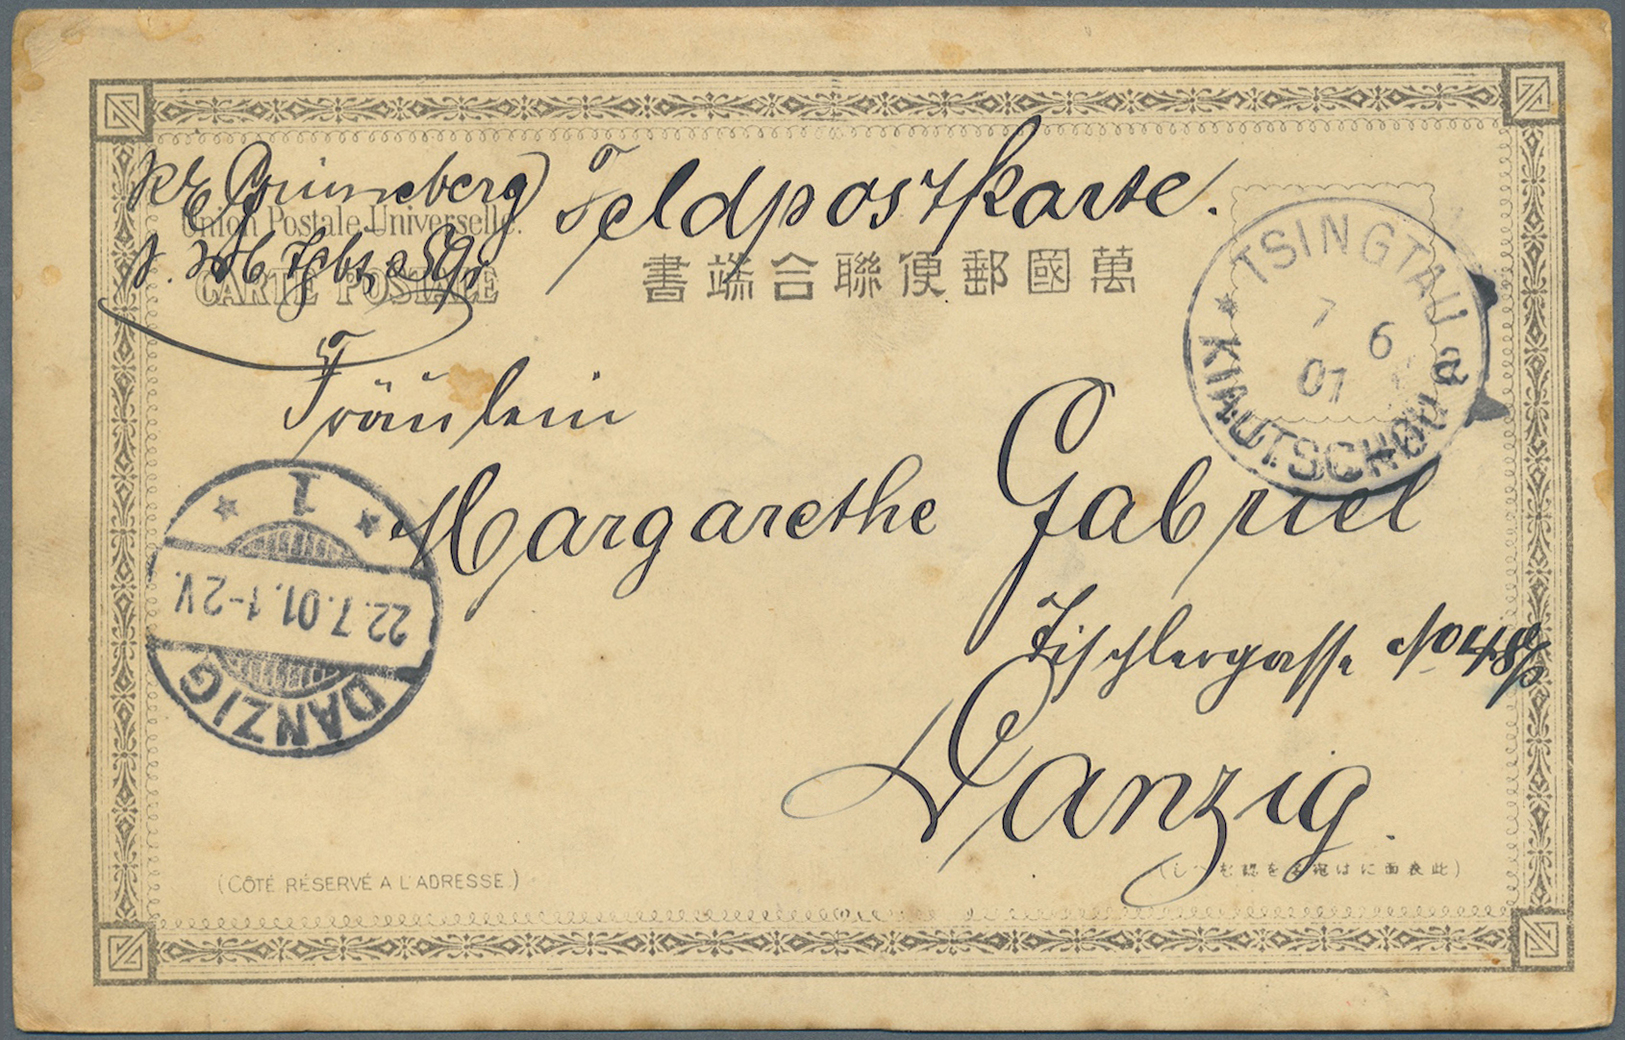 Grünneberg
Feldpostkarte.
Union Postale Universelle.
CARTE POSTALE
萬國郵便聯合端書
TSINGTAU
7 6
01
a
KIAUTSCHOU
Fräulein
Margarethe Gabriel
Tischlergasse No 48/
Danzig.
1
22.7.01.1-2V.
DANZIG
(CÔTÉ RÉSERVÉ A L'ADRESSE.)
(此表面には宛名を認むべし)